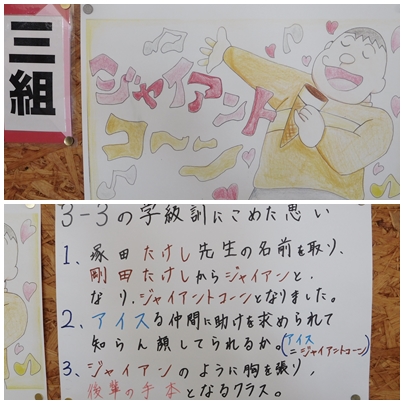 三組
ジャイアント
コーン
3-3の学級訓にこめた思い
1、塚田たけし先生の名前を取り、
剛田たけしからジャイアンと、
なり、ジャイアントコーンとなりました。
2、アイスる仲間に助けを求められて
知らん顔してられるか。(アイス
=ジャイアントコーン)
3、ジャイアンのように胸を張り、
後輩の手本となるクラス。